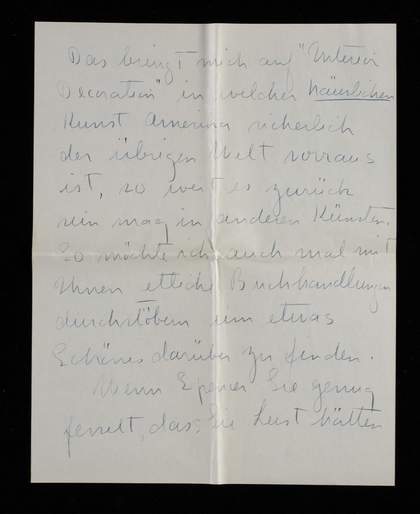 Das bringt mich auf "Interior
Decoration" in welcher häuslichen
Kunst America sicherlich
der übrigen Welt vorraus
ist, so weit es zurück
sein mag in anderen Künsten.
So möchte ich auch mal mit
Ihnen etliche Buchhandlungen
durchstöbern um etwas
Schönes darüber zu finden.
Wenn Sie genug
, dass Sie Lust hätten